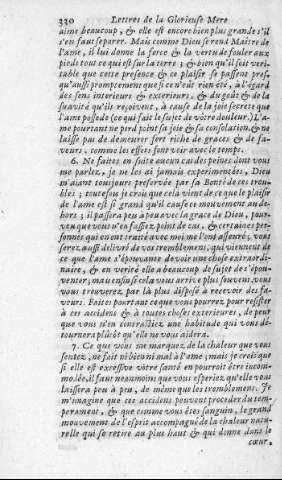 320 Lettres de la Glorieuse Mere
aime beaucoup, & elle est encor bien plus grande s'il
s'en faut separer. Mais comme Dieu se rend Maitre de
l'ame, il lui donne la force & la vertu de fouler aux
pieds tout ce qui est sur la terre ; & bien qu'il soit veri-
table que cette presence & ce plaisir se passent pres-
qu'aussi promptement que si ce n'eût rien été, à l'égard
des sens interieurs & exterieurs, & du goût & de la
suavité qu'ils reçoivent, à cause de la joie secrete que
l'ame possede (ce qui fait le sujet de vôtre douleur.) L'a-
me pourtant ne perd point sa joie & sa consolation, & ne
laisse pas de demeurer fort riche de graces & de fa-
veurs, comme les effets font voir avec le temps.
6. Ne faites en suite aucun cas des peines dont vous
me parlez, je ne les ai jamais experimentées, Dieu
m'aiant toujours preservée par sa Bonté de ces trou-
bles ; toutefois je crai que cela vient de ce que le plaisir
de l'ame est si grand qu'il cause ce mouvement au de-
hors ; il passera peu à peu avec la grace de Dieu, pour-
veu que vous n'en fassiez point de cas, & certaines per-
sonnes qui en ont traité avec moi me l'ont asseuré ; vous
serez aussi delivré de vos tremblemens, qui viennent de
ce que l'ame s'épouvante de voir une chose extraordi-
naire, & en verité elle a beaucoup de sujet de s'épou-
venter ; mais ensin si cela vous arrive plus souvent, vous
vous trouverez par là plus disposé à recevoir des fa-
veurs. Faites pourtant ce que vous pourrez pour resister
à ces accidens & à toutes choses exterieures, de peur
que vous n'en contractiez une habitude qui vous dé-
tournera plûtôt qu'elle ne vous aidera.
7. Ce que vous me marquez de la chaleur que vous
sentez, ne fait ni bien ni mal à l'ame ; mais je croi que
si elle est excessive vôtre santé en pourroit être incom-
modée, il faut neanmoins que vous esperiez qu'elle vous
laissera peu à peu, de même que les tremblemens. Je
m'imagine que ces accidens peuvent proceder du tem-
perament, & que comme vous êtes sanguin, le grand
mouvement de l'esprit accompagné de la chaleur natu-
relle qui se retire au plus haut & qui donne dans le
cœur,